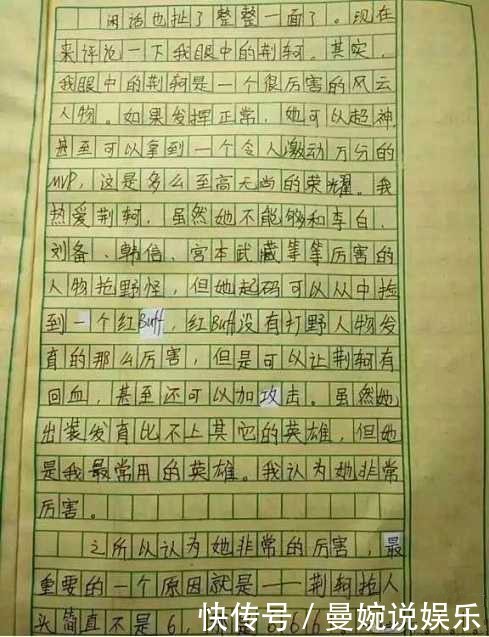 闲话也扯了整整一面了。现在
来评论一下我眼中的荆轲。其实,
我眼中的荆轲是一个很厉害的风云
人物。如果发挥正常,她可以超神,
甚至可以拿到一个令人激动万分的
MVP,这是多么至高无尚的荣耀。我
热爱荆轲,虽然她不能够和李白、
刘备、韩信、宫本武藏等等厉害的
人物抢野怪,但她起码可以从中捡
到一个红Buff,红Buff没有打野人物发
育的那么厉害,但是可以让荆轲有
回血,甚至还可以加攻击。虽然她
出装发育比不上其它的英雄,但她
是我最常用的英雄。我认为她非常
厉害。
之所以认为她非常的厉害,最
重要的一个原因就是——荆轲拉人
头简直不是6,
快传号/曼婉说娱乐